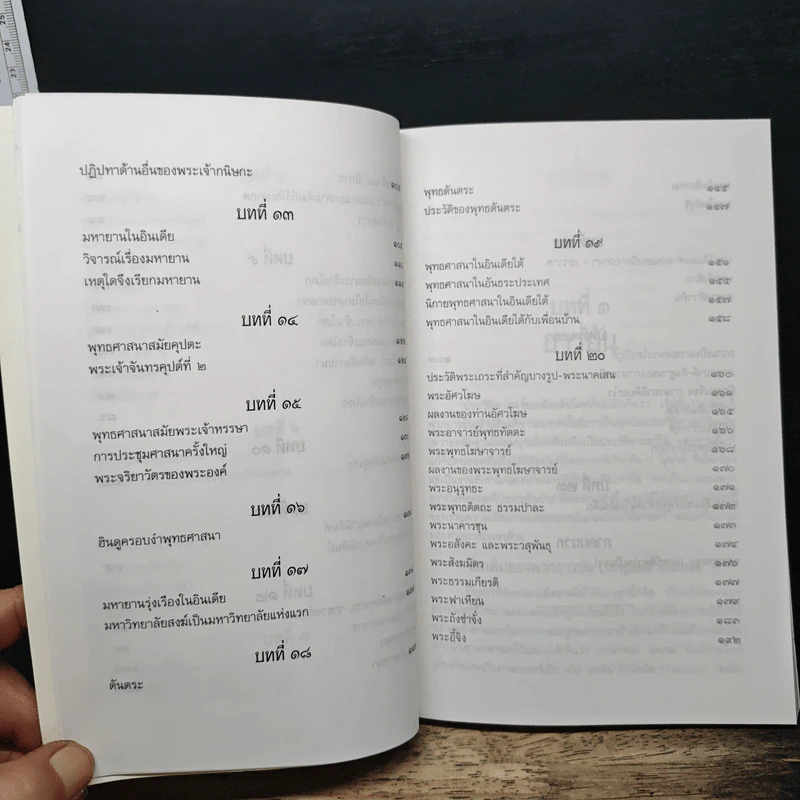 ปฏิปทาด้านอื่นของพระเจ้ากนิษกะ
บทที่ ๑๓
มหายานในอินเดีย
วิจารณ์เรื่องมหายาน
เหตุใดจึงเรียกมหายาน
บทที่ ๑๔
พุทธศาสนาสมัยคุปตะ
พระเจ้าจันทรคุปต์ที่ ๒
บทที่ ๑๕
พุทธศาสนาสมัยพระเจ้าหรรษา
การประชุมศาสนาครั้งใหญ่
พระจริยาวัตรของพระองค์
บทที่ ๑๖
ฮินดูครอบงำพุทธศาสนา
บทที่ ๑๗
มหายานรุ่งเรืองในอินเดีย
มหาวิทยาลัยสงฆ์เป็นมหาวิทยาลัยแห่งแรก
บทที่ ๑๘
ตันตระ
พุทธตันตระ ๑๔๕
ประวัติของพุทธตันตระ ๑๔๗
บทที่ ๑๙
พุทธศาสนาในอินเดียใต้ ๑๕๑
พุทธศาสนาในอันธระประเทศ ๑๕๕
นิกายพุทธศาสนาในอินเดียใต้ ๑๕๗
พุทธศาสนาในอินเดียใต้กับเพื่อนบ้าน ๑๕๘
บทที่ ๒๐
ประวัติพระเถระที่สำคัญบางรูป-พระนาคเสน ๑๖๐
พระอัศวโฆษ ๑๖๑
ผลงานของท่านอัศวโฆษ ๑๖๕
พระอาจารย์พุทธทัตตะ ๑๖๖
พระพุทธโฆษาจารย์ ๑๖๘
ผลงานของพระพุทธโฆษาจารย์ ๑๗๐
พระอนุรุทธะ ๑๗๑
พระพุทธติตถะ ธรรมปาละ ๑๗๒
พระนาคารชุน ๑๗๓
พระอสังคะ และพระวสุพันธุ ๑๗๔
พระสังฆมิตร ๑๗๖
พระธรรมเกียรติ ๑๗๗
พระฟาเหียน ๑๗๙
พระถังซำจั๋ง ๑๘๓
พระอี้จิง ๑๙๒